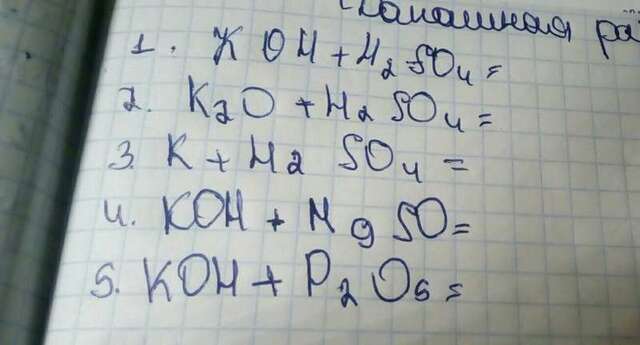 Домашняя ра
1. KOH + H2SO4 =
2. K2O + H2SO4 =
3. K + H2SO4 =
4. KOH + MgSO =
5. KOH + P2O5 =